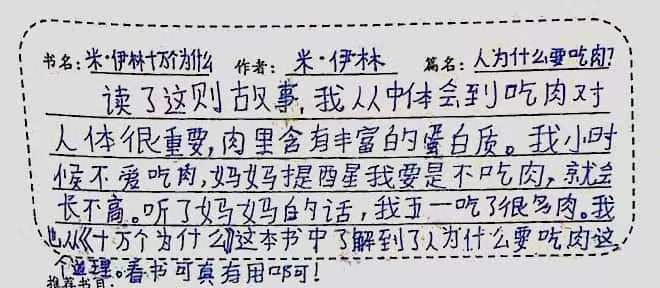 书名：米·伊林十万个为什么 作者：米·伊林 篇名：人为什么要吃肉？
读了这则故事，我从中体会到吃肉对
人体很重要，肉里含有丰富的蛋白质。我小时
候不爱吃肉，妈妈提醒我要是不吃肉，就会
长不高。听了妈妈的话，我五一吃了很多肉。我
也从《十万个为什么》这本书中了解到了人为什么要吃肉这
个道理。看书可真有用啊！
推荐书目：